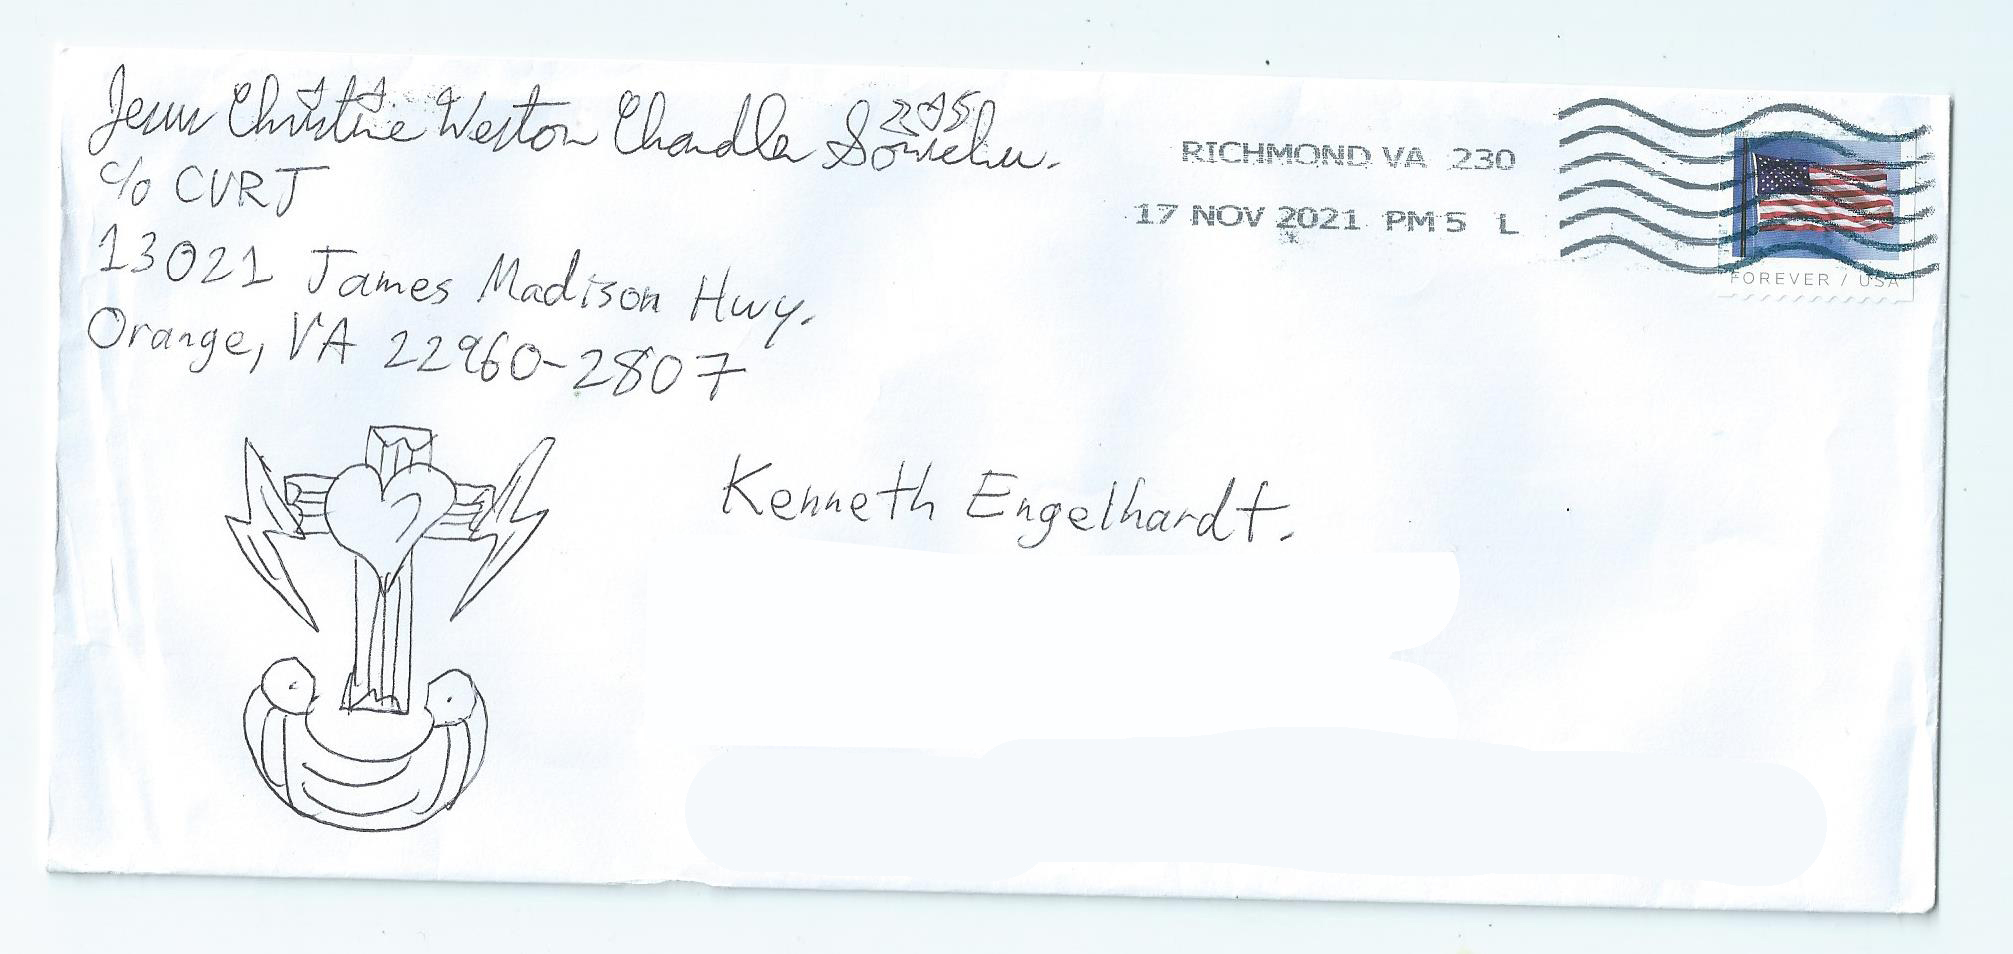 Jesus Christine Weston Chandler Sonichu.
c/o CVRJ
13021 James Madison Hwy.
Orange, VA 22960-2807
RICHMOND VA 230
17 NOV 2021 PM 5 L
FOREVER / USA
Kenneth Engelhardt.